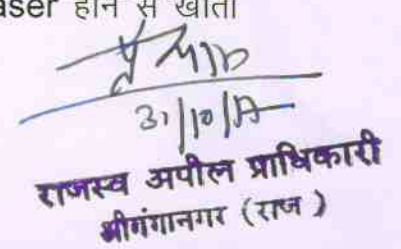 aser होने से खाता
31/10/17
राजस्व अपील प्राधिकारी
श्रीगंगानगर (राज )